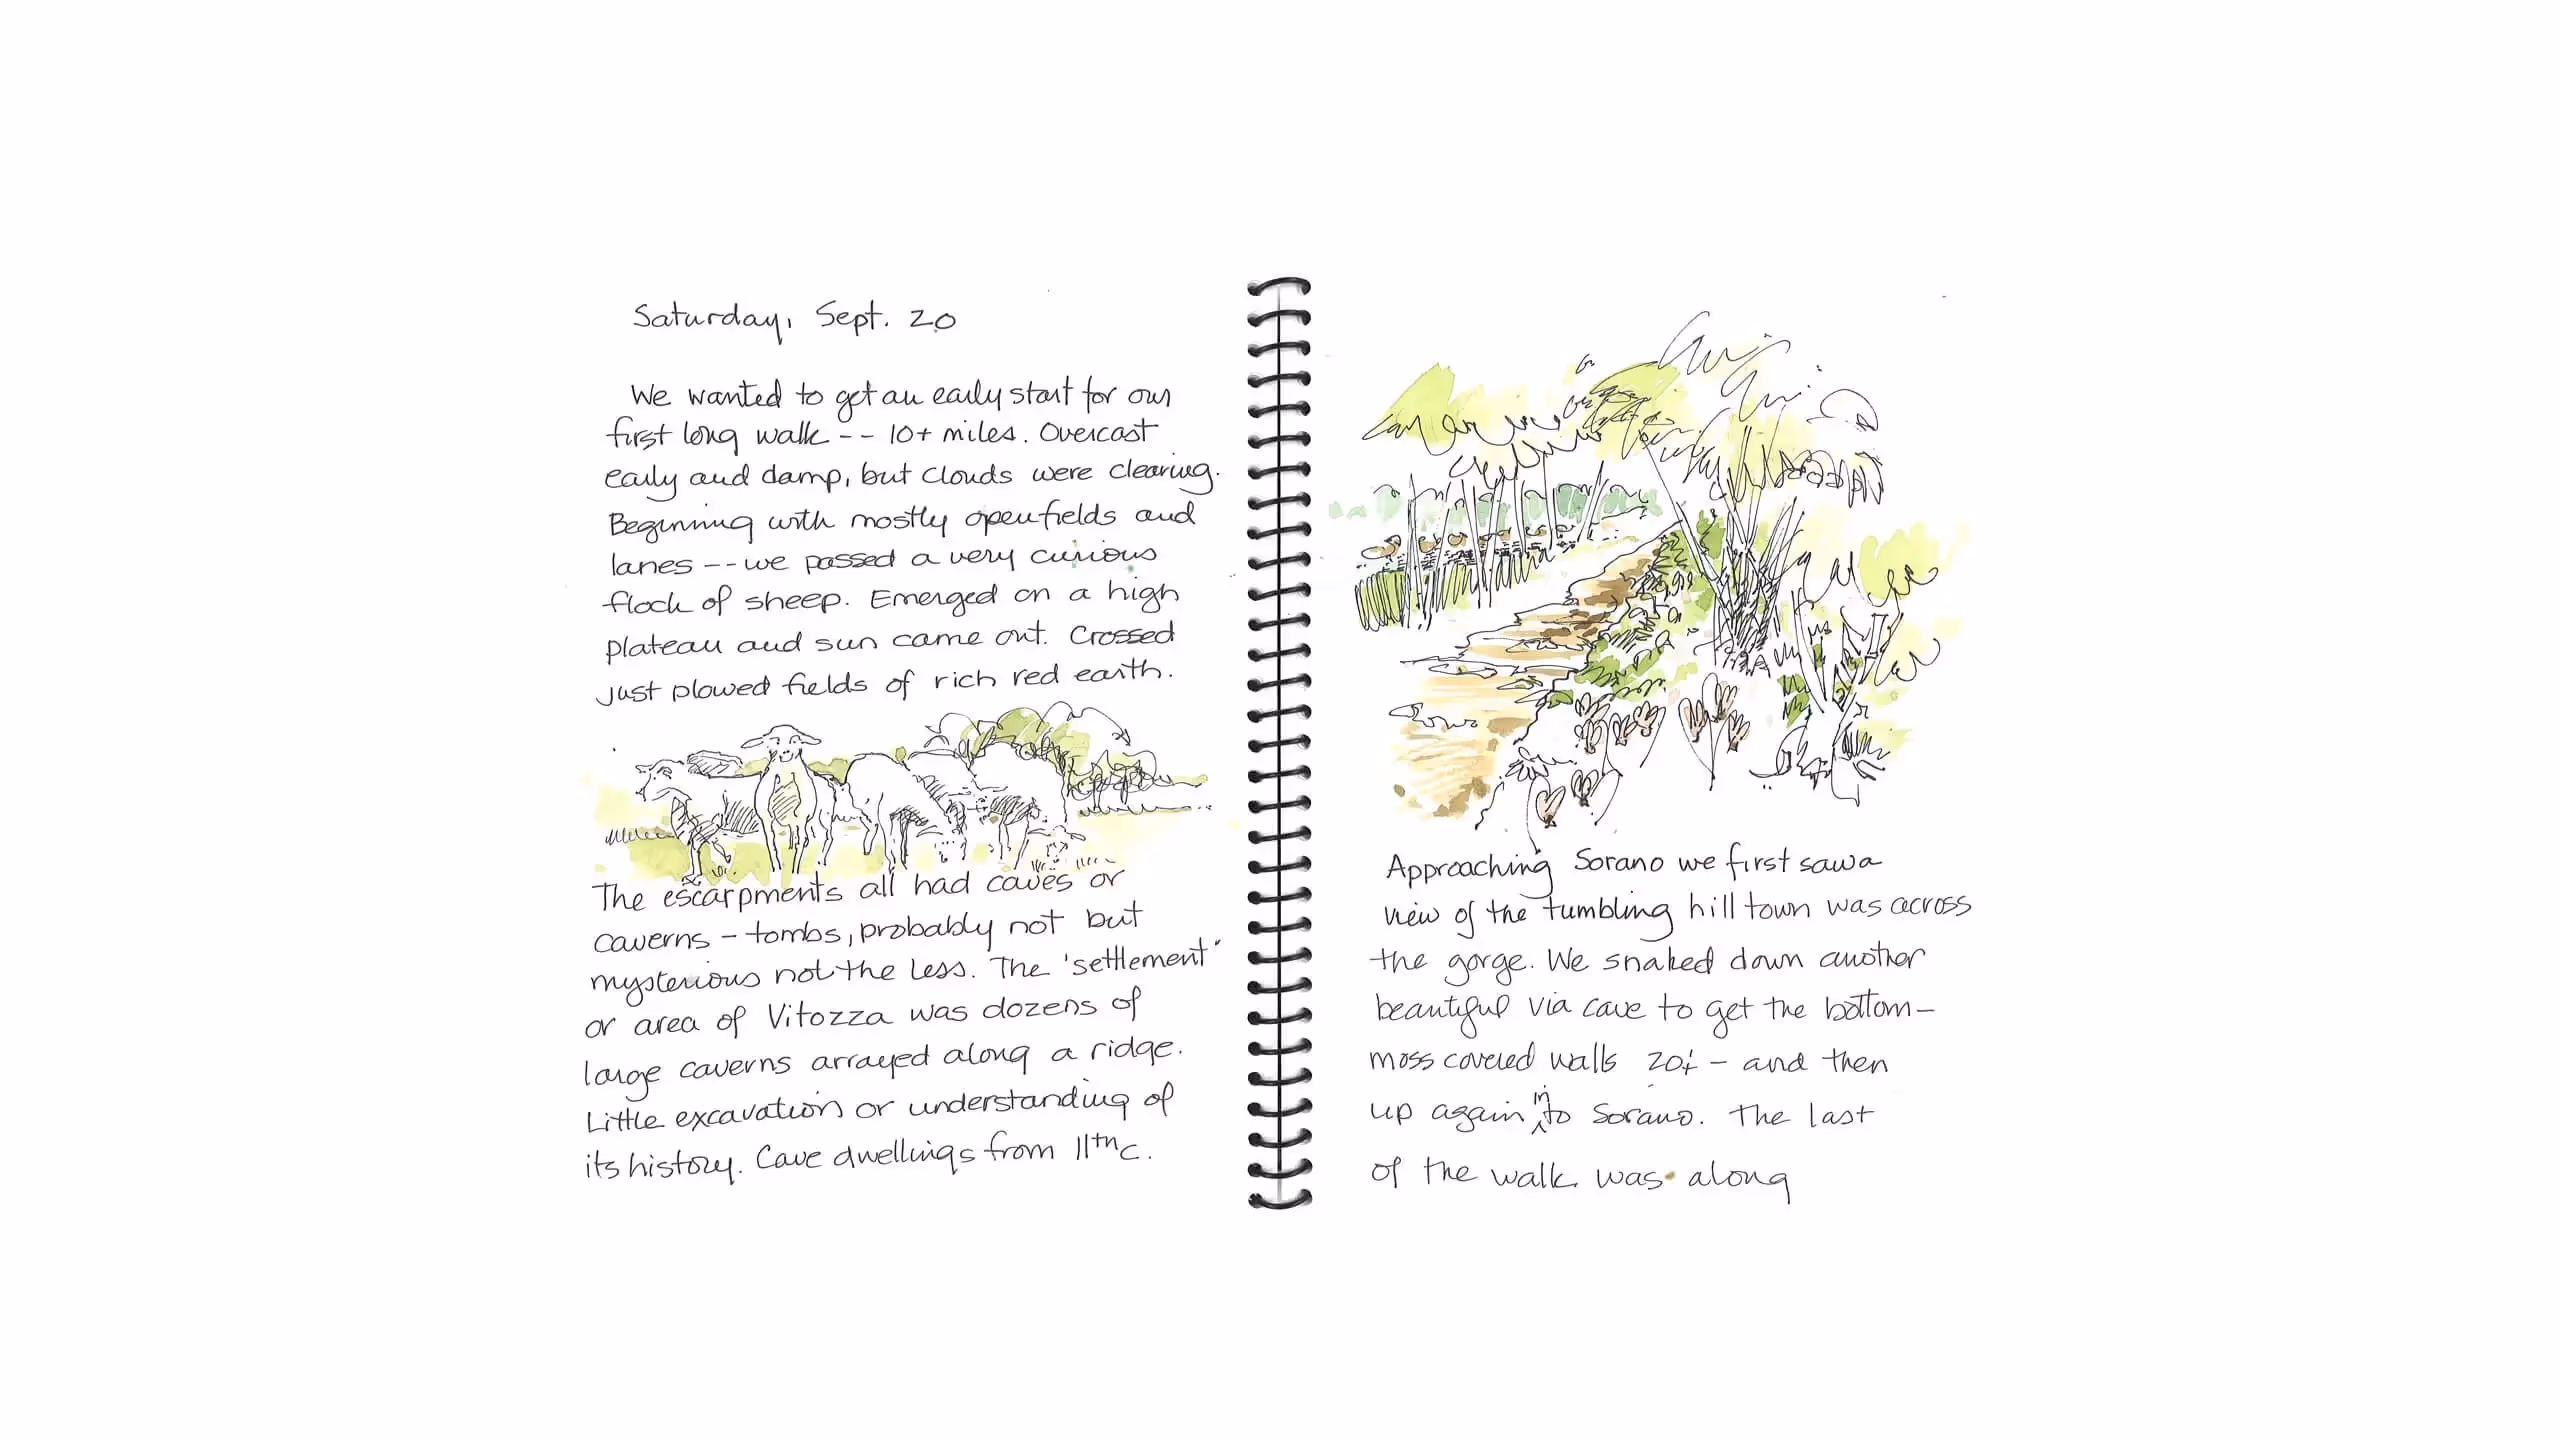 Saturday, Sept. 20
We wanted to get an early start for our
first long walk -- 10+ miles. Overcast
early and damp, but clouds were clearing.
Beginning with mostly open fields and
lanes -- we passed a very curious
flock of sheep. Emerged on a high
plateau and sun came out. Crossed
just plowed fields of rich red earth.
The escarpments all had caves or
caverns – tombs, probably not but
mysterious not the less. The 'settlement'
or area of Vitozza was dozens of
large caverns arrayed along a ridge.
Little excavation or understanding of
its history. Cave dwellings from 11th c.
Approaching Sorano we first saw a
view of the tumbling hill town was across
the gorge. We snaked down another
beautiful via cave to get the bottom –
moss covered walls – and then
up again into Sorano. The last
of the walk was along